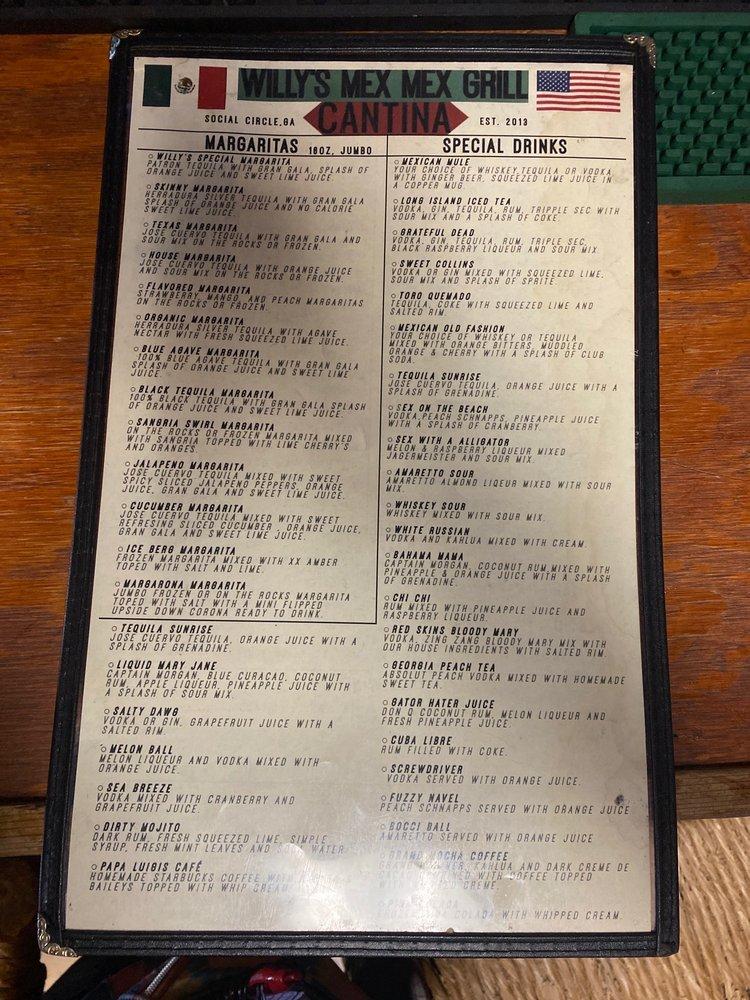 WILLY'S MEX MEX GRILL
CANTINA
SOCIAL CIRCLE,GA
EST. 2013
MARGARITAS 18OZ, JUMBO
WILLY'S SPECIAL MARGARITA
PATRON TEQUILA WITH GRAN GALA, SPLASH OF
ORANGE JUICE AND SWEET LIME JUICE.
SKINNY MARGARITA
HERRADURA SILVER TEQUILA WITH GRAN GALA
SPLASH OF ORANGE JUICE AND NO CALORIE
SWEET LIME JUICE.
TEXAS MARGARITA
JOSE CUERVO TEQUILA WITH GRAN GALA AND
SOUR MIX ON THE ROCKS OR FROZEN.
HOUSE MARGARITA
JOSE CUERVO TEQUILA WITH ORANGE JUICE
AND SOUR MIX ON THE ROCKS OR FROZEN.
FLAVORED MARGARITA
STRAWBERRY, MANGO, AND PEACH MARGARITAS
ON THE ROCKS OR FROZEN.
ORGANIC MARGARITA
HERRADURA SILVER TEQUILA WITH AGAVE
NECTAR WITH FRESH SQUEEZED LIME JUICE.
BLUE AGAVE MARGARITA
100% BLUE AGAVE TEQUILA WITH GRAN GALA
SPLASH OF ORANGE JUICE AND SWEET LIME
JUICE.
BLACK TEQUILA MARGARITA
100% BLACK TEQUILA WITH GRAN GALA SPLASH
OF ORANGE JUICE AND SWEET LIME JUICE.
SANGRIA SWIRL MARGARITA
ON THE ROCKS OR FROZEN MARGARITA MIXED
WITH SANGRIA TOPPED WITH LIME CHERRY'S
AND ORANGES.
JALAPENO MARGARITA
JOSE CUERVO TEQUILA MIXED WITH SWEET
SPICY SLICED JALAPENO PEPPERS, ORANGE
JUICE, GRAN GALA AND SWEET LIME JUICE.
CUCUMBER MARGARITA
JOSE CUERVO TEQUILA MIXED WITH SWEET
REFRESING SLICED CUCUMBER , ORANGE JUICE,
GRAN GALA AND SWEET LIME JUICE.
ICE BERG MARGARITA
FROZEN MARGARITA MIXED WITH XX AMBER
TOPED WITH SALT AND LIME.
MARGARONA MARGARITA
JUMBO FROZEN OR ON THE ROCKS MARGARITA
TOPED WITH SALT WITH A MINI FLIPPED
UPSIDE DOWN CORONA READY TO DRINK.
TEQUILA SUNRISE
JOSE CUERVO TEQUILA, ORANGE JUICE WITH A
SPLASH OF GRENADINE.
LIQUID MARY JANE
CAPTAIN MORGAN, BLUE CURACAO, COCONUT
RUM, APPLE LIQUEUR, PINEAPPLE JUICE WITH
A SPLASH OF SOUR MIX.
SALTY DAWG
VODKA OR GIN, GRAPEFRUIT JUICE WITH A
SALTED RIM.
MELON BALL
MELON LIQUEUR AND VODKA MIXED WITH
ORANGE JUICE.
SEA BREEZE
VODKA MIXED WITH CRANBERRY AND
GRAPEFRUIT JUICE.
DIRTY MOJITO
DARK RUM, FRESH SQUEEZED LIME, SIMPLE
SYRUP, FRESH MINT LEAVES AND SODA WATER
PAPA LUIGIS CAFÉ
HOMEMADE STARBUCKS COFFEE WITH
BAILEYS TOPPED WITH WHIP CREAM
SPECIAL DRINKS
MEXICAN MULE
YOUR CHOICE OF WHISKEY,TEQUILA OR VODKA
WITH GINGER BEER, SQUEEZED LIME JUICE IN
A COPPER MUG.
LONG ISLAND ICED TEA
VODKA, GIN, TEQUILA, RUM, TRIPPLE SEC WITH
SOUR MIX AND A SPLASH OF COKE.
GRATEFUL DEAD
VODKA, GIN, TEQUILA, RUM, TRIPLE SEC,
BLACK RASPBERRY LIQUEUR AND SOUR MIX.
SWEET COLLINS
VODKA OR GIN MIXED WITH SQUEEZED LIME,
SOUR MIX AND SPLASH OF SPRITE.
TORO QUEMADO
TEQUILA, COKE WITH SQUEEZED LIME AND
SALTED RIM.
MEXICAN OLD FASHION
YOUR CHOICE OF WHISKEY OR TEQUILA
MIXED WITH ORANGE BITTERS, MUDDLED
ORANGE & CHERRY WITH A SPLASH OF CLUB
SODA.
TEQUILA SUNRISE
JOSE CUERVO TEQUILA, ORANGE JUICE WITH A
SPLASH OF GRENADINE.
SEX ON THE BEACH
VODKA,PEACH SCHNAPPS, PINEAPPLE JUICE
WITH A SPLASH OF CRANBERRY.
SEX WITH A ALLIGATOR
MELON & RASPBERRY LIQUEUR MIXED
JAGERMEISTER AND SOUR MIX.
AMARETTO SOUR
AMARETTO ALMOND LIQEUR MIXED WITH SOUR
MIX.
WHISKEY SOUR
WHISKEY MIXED WITH SOUR MIX.
WHITE RUSSIAN
VODKA AND KAHLUA MIXED WITH CREAM.
BAHAMA MAMA
CAPTAIN MORGAN, COCONUT RUM,MIXED WITH
PINEAPPLE & ORANGE JUICE WITH A SPLASH
OF GRENADINE.
CHI CHI
RUM MIXED WITH PINEAPPLE JUICE AND
RASPBERRY LIQUEUR.
RED SKINS BLOODY MARY
VODKA, ZING ZANG BLOODY MARY MIX WITH
OUR HOUSE INGREDIENTS WITH SALTED RIM.
GEORGIA PEACH TEA
ABSOLUT PEACH VODKA MIXED WITH HOMEMADE
SWEET TEA.
GATOR HATER JUICE
DON Q COCONUT RUM, MELON LIQUEUR AND
FRESH PINEAPPLE JUICE.
CUBA LIBRE
RUM FILLED WITH COKE.
SCREWDRIVER
VODKA SERVED WITH ORANGE JUICE.
FUZZY NAVEL
PEACH SCHNAPPS SERVED WITH ORANGE JUICE
BOCCI BALL
AMARETTO SERVED WITH ORANGE JUICE
GRAND MOCHA COFFEE
KAHLUA AND DARK CREME DE
WITH COFFEE TOPPED
CREME.
COLADA
COLADA WITH WHIPPED CREAM.